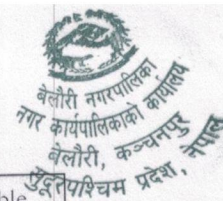 बेलौरी नगरपालिका
नगर कार्यपालिकाको कार्यालय
बेलौरी, कञ्चनपुर
सुदूरपश्चिम प्रदेश, नेपाल
ble